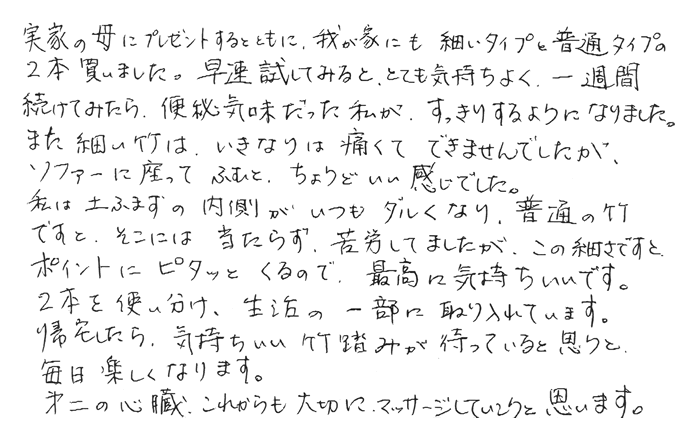 実家の母にプレゼントするとともに、我が家にも細いタイプと普通タイプの
2本買いました。早速試してみると、とても気持ちよく、一週間
続けてみたら、便秘気味だった私が、すっきりするようになりました。
また細い竹は、いきなりは痛くてできませんでしたが、
ソファーに座ってふむと、ちょうどいい感じでした。
私は土ふまずの内側がいつもダルくなり、普通の竹
ですと、そこには当たらず、苦労してましたが、この細さですと
ポイントにピタッとくるので、最高に気持ちいいです。
2本を使い分け、生活の一部に取り入れています。
帰宅したら、気持ちいい竹踏みが待っていると思うと、
毎日楽しくなります。
第二の心臓、これからも大切に、マッサージしていこうと思います。